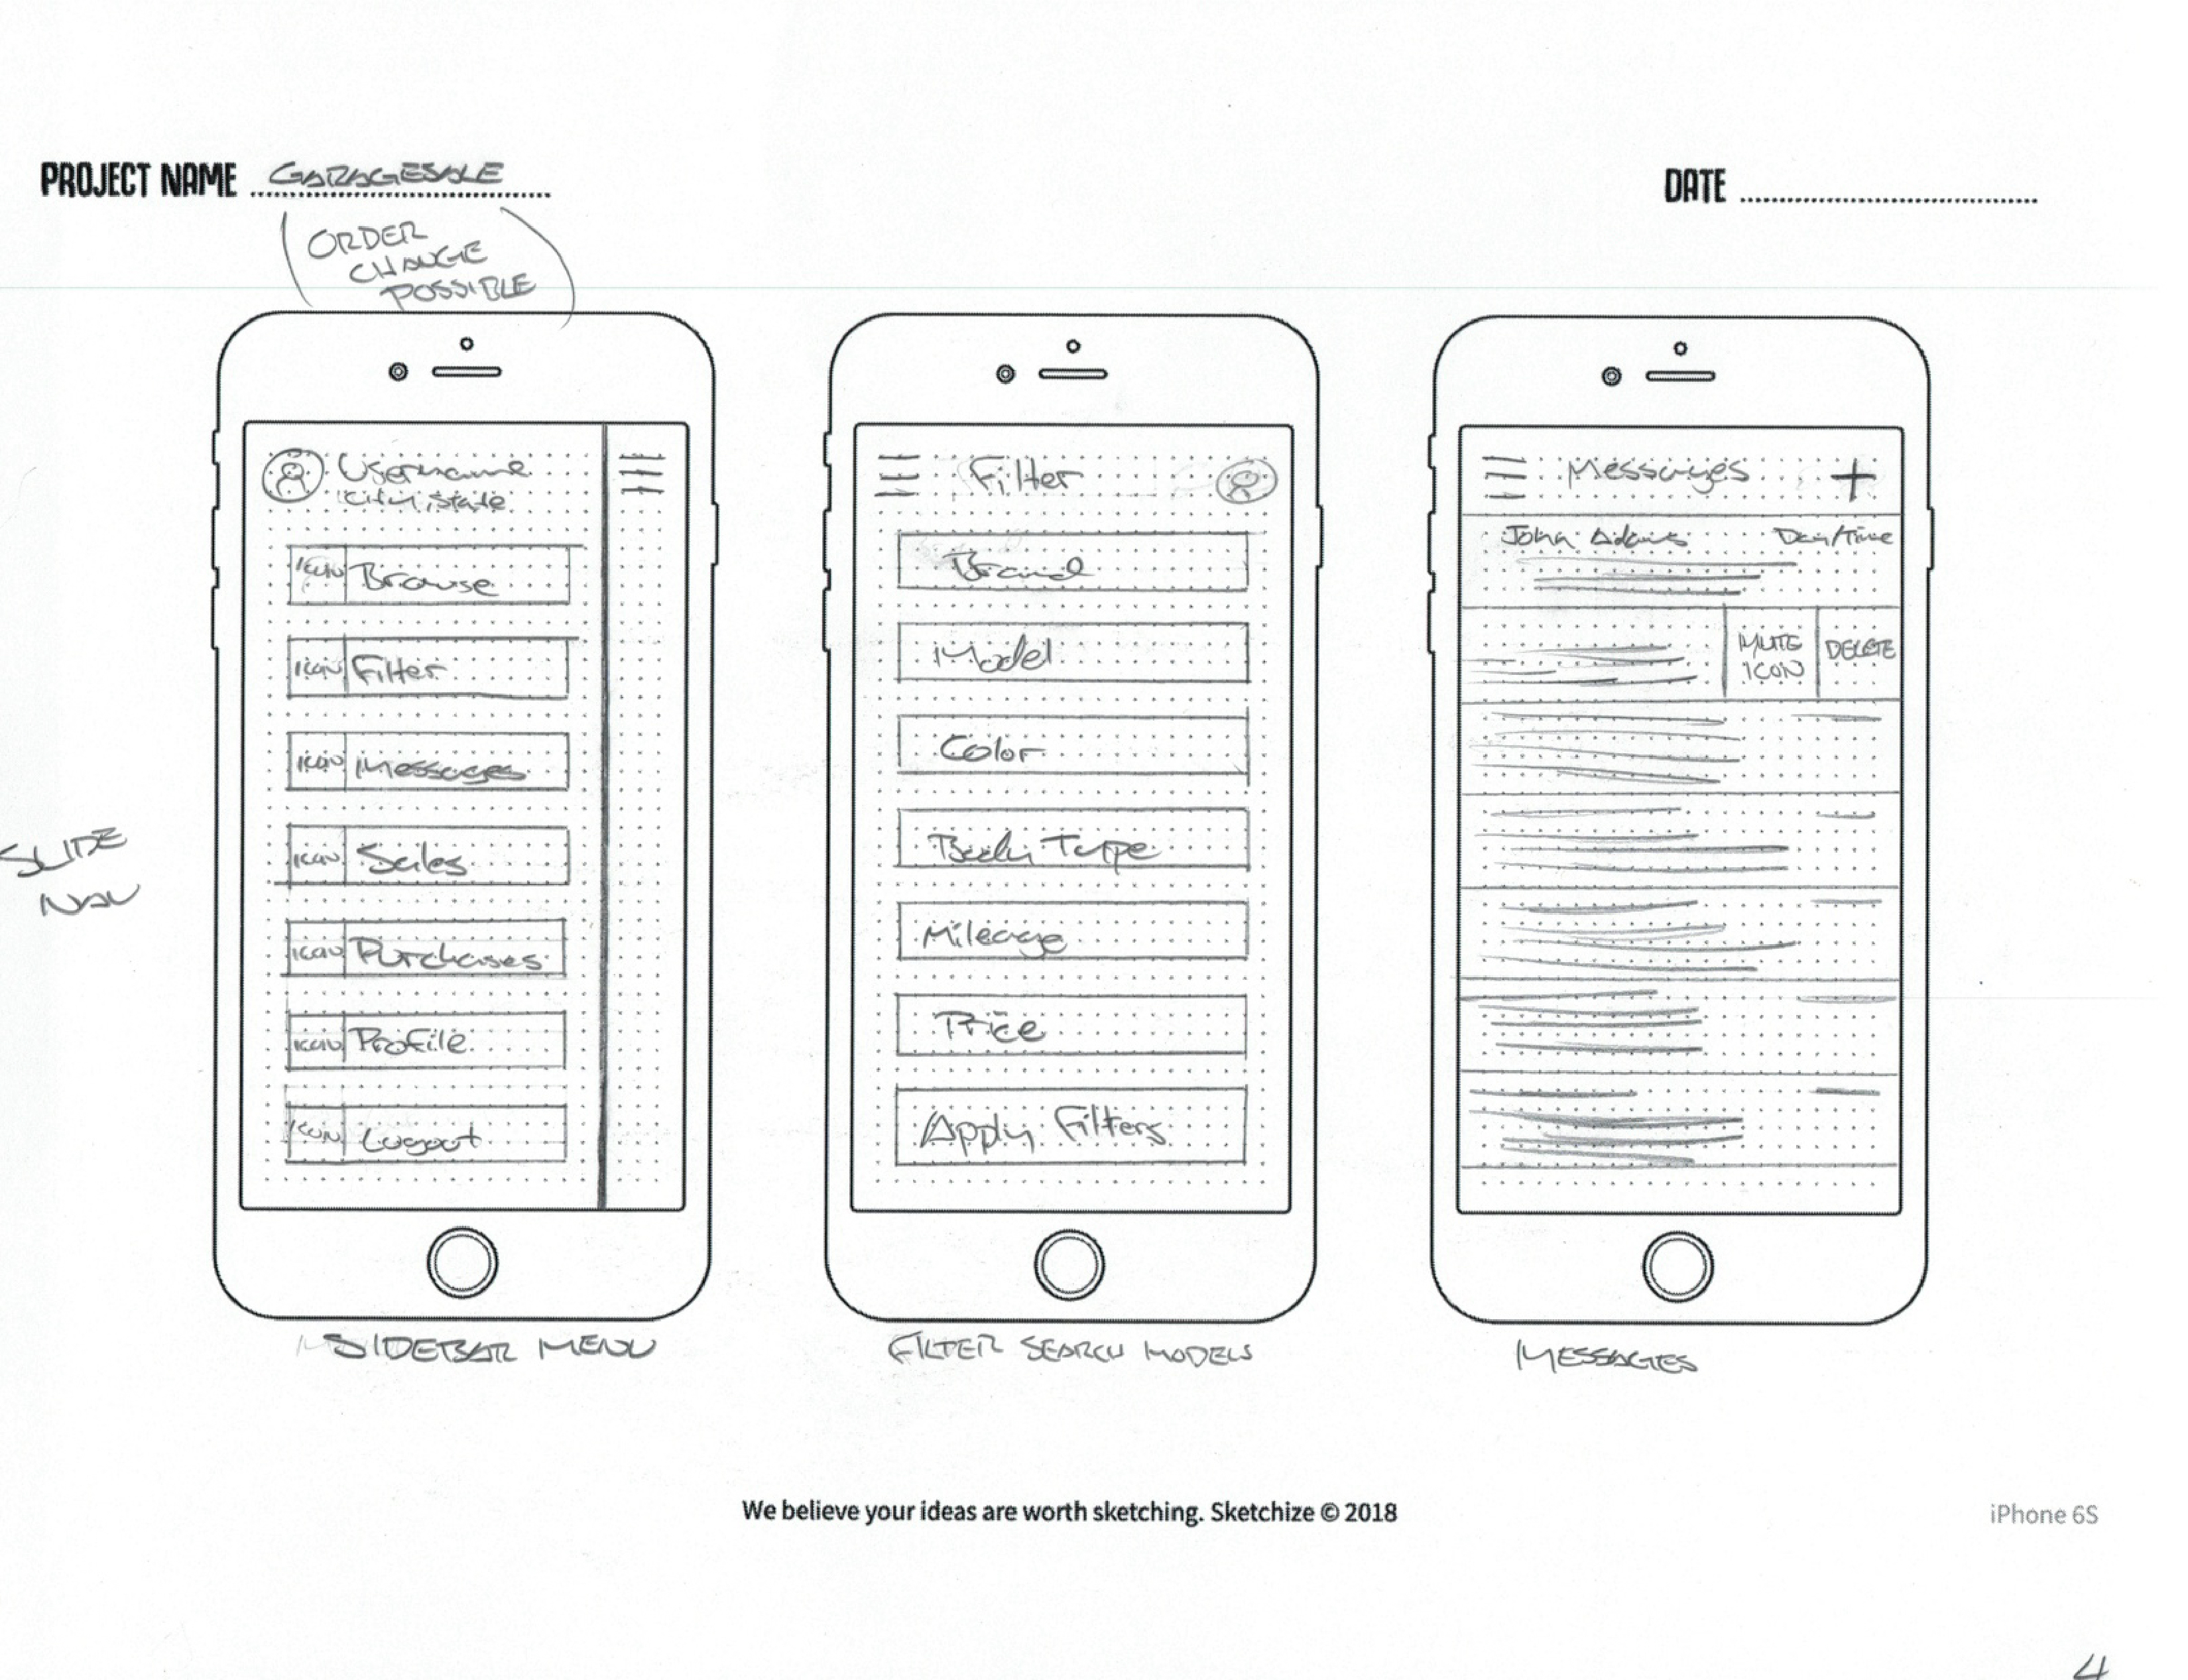 PROJECT NAME GARAGESALE
DATE
ORDER
CHANGE
POSSIBLE
SLIDE
NAV
Username
City, State
ICON Browse
ICON Filter
ICON Messages
ICON Sales
ICON Purchases
ICON Profile
ICON Logout
SIDEBAR MENU
Filter
Brand
Model
Color
Body Type
Mileage
Price
Apply Filters
FILTER SEARCH MODELS
Messages +
John Adams Day/Time
MUTE
ICON
DELETE
MESSAGES
We believe your ideas are worth sketching. Sketchize © 2018
iPhone 6S
4